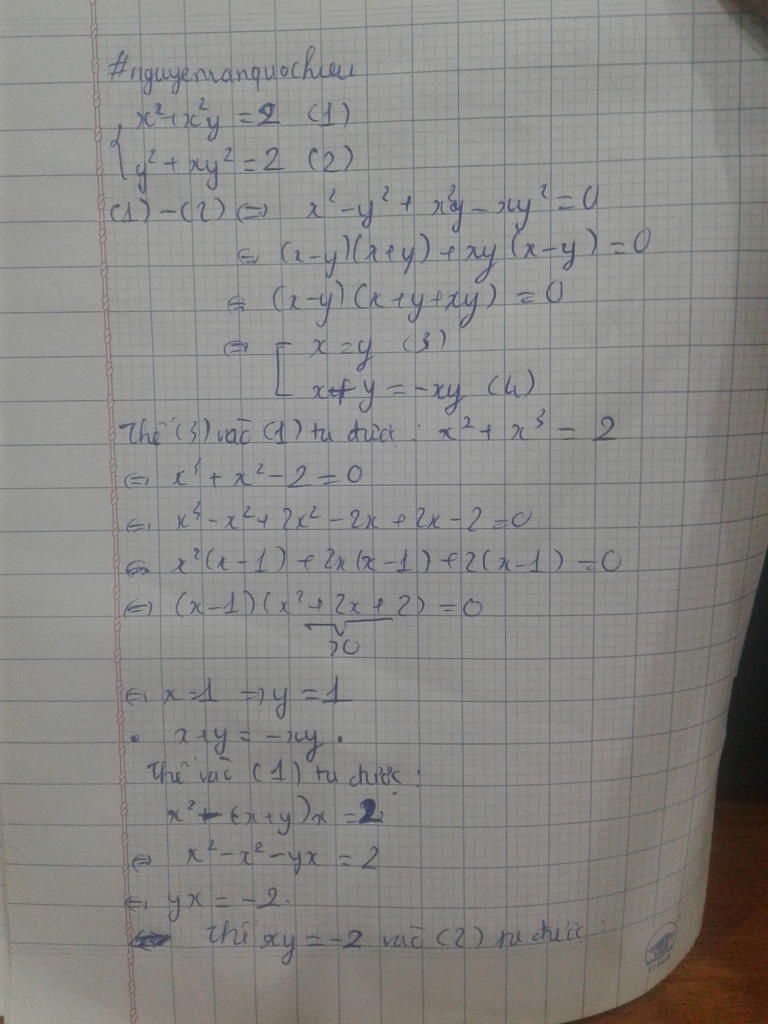 #nguyentranquochieu
x² + x²y = 2 (1)
y² + xy² = 2 (2)
(1) - (2) ⇔ x² - y² + x²y - xy² = 0
⇔ (x-y)(x+y) + xy(x-y) = 0
⇔ (x-y)(x+y+xy) = 0
⇔ [ x = y (3)
x + y = -xy (4)
Thế (3) vào (1) ta được: x² + x³ = 2
⇔ x³ + x² - 2 = 0
⇔ x³ - x² + 2x² - 2x + 2x - 2 = 0
⇔ x²(x-1) + 2x(x-1) + 2(x-1) = 0
⇔ (x-1)(x² + 2x + 2) = 0
>0
⇔ x = 1 ⇒ y = 1
• x + y = -xy.
Thế vào (1) ta được:
x² - (x+y)x = 2
⇔ x² - x² - yx = 2
⇔ yx = -2.
Thế xy = -2 vào (2) ta được: